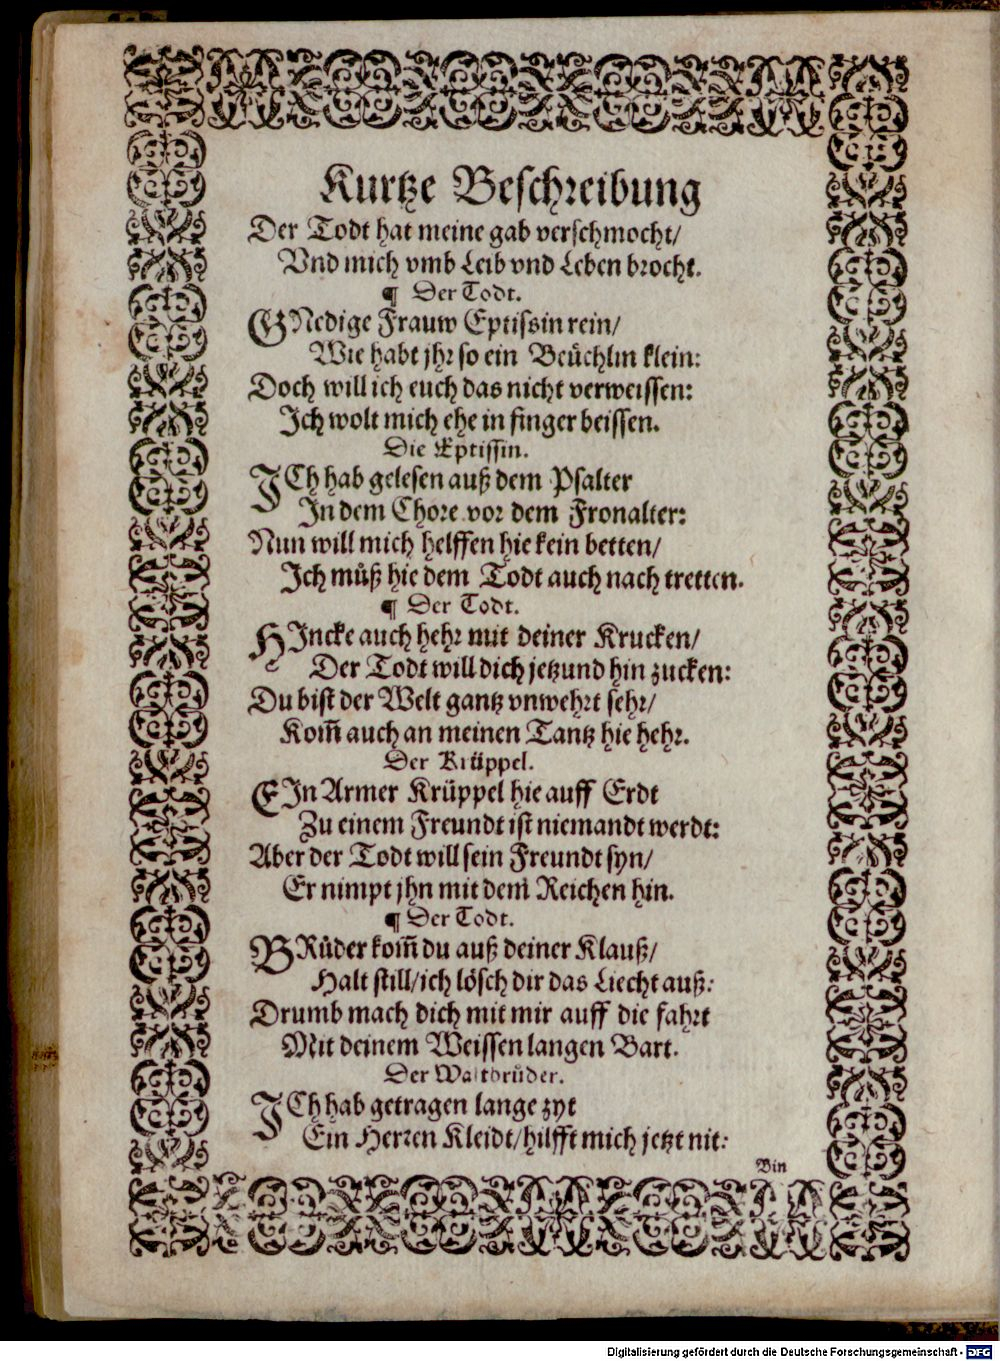 Kurtze Beschreibung
Der Todt hat meine gab verschmocht/
Vnd mich vmb Leib vnd Leben brocht.
¶ Der Todt.
GNedige Frauw Eptissin rein/
Wie habt jhr so ein Beüchlin klein:
Doch will ich euch das nicht verweissen:
Ich wolt mich ehe in finger beissen.
Die Eptissin.
ICh hab gelesen auß dem Psalter
In dem Chore vor dem Fronalter:
Nun will mich helffen hie kein betten/
Ich můß hie dem Todt auch nach tretten.
¶ Der Todt.
HIncke auch hehr mit deiner Krucken/
Der Todt will dich jetzund hin zucken:
Du bist der Welt gantz vnwehrt sehr/
Kom̃ auch an meinen Tantz hie hehr.
Der Krüppel.
EIn Armer Krüppel hie auff Erdt
Zu einem Freundt ist niemandt werdt:
Aber der Todt will sein Freundt syn/
Er nimpt jhn mit dem Reichen hin.
¶ Der Todt.
BRůder kom̃ du auß deiner Klauß/
Halt still/ich lösch dir das Liecht auß:
Drumb mach dich mit mir auff die fahrt
Mit deinem Weissen langen Bart.
Der Waltbrůder.
ICh hab getragen lange zyt
Ein Herren Kleidt/hilfft mich jetzt nit:
Bin
Digitalisierung gefördert durch die Deutsche Forschungsgemeinschaft - DFG